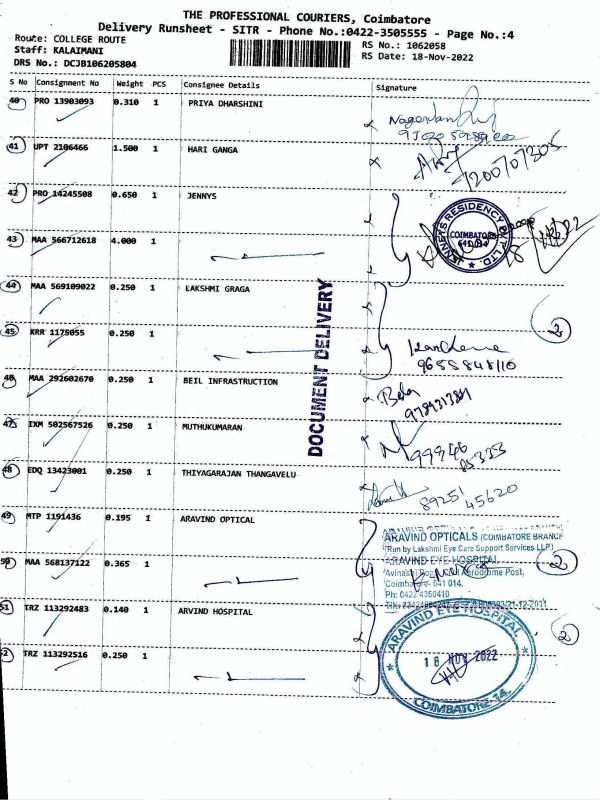 THE PROFESSIONAL COURIERS, Coimbatore
Delivery Runsheet - SITR - Phone No.:0422-3505555 - Page No.:4
Route: COLLEGE ROUTE
RS No.: 1062058
Staff: KALAIMANI
RS Date: 18-Nov-2022
DRS No.: DCJB106205804
S No Consignment No Weight PCS Consignee Details Signature
40 PRO 13903093 0.310 1 PRIYA DHARSHINI
41 UPT 2106466 1.500 1 HARI GANGA
7200707305
42 PRO 14245508 0.650 1 JENNYS
JENNEYS RESIDENCY PVT LTD.
COIMBATORE
641 014
43 MAA 566712618 4.000 1
44 MAA 569109022 0.250 1 LAKSHMI GRAGA
2
DOCUMENT DELIVERY
45 KRR 1175055 0.250 1
9655848110
46 MAA 292602670 0.250 1 BEIL INFRASTRUCTION
47 IXM 502567526 0.250 1 MUTHUKUMARAN
99946
48 EDQ 13423001 0.250 1 THIYAGARAJAN THANGAVELU
89251 45620
49 MTP 1191436 0.195 1 ARAVIND OPTICAL
ARAVIND OPTICALS (COIMBATORE BRANCH
(Run by Lakshmi Eye Care Support Services LLP.)
ARAVIND EYE HOSPITAL
50 MAA 568137122 0.365 1
2
Avinashi Road, Civil Aerodrome Post,
Coimbatore- 641 014.
Ph: 0422 4360410
51 TRZ 113292483 0.140 1 ARVIND HOSPITAL
2
ARAVIND EYE HOSPITAL
18 NOV 2022
COIMBATORE-14.
52 TRZ 113292516 0.250 1